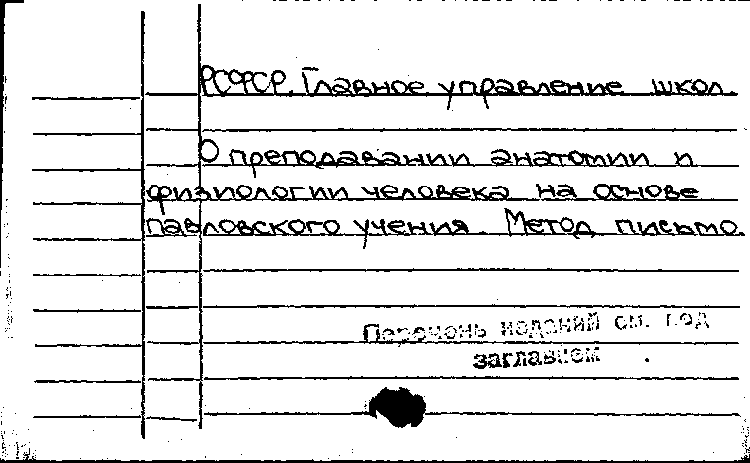 РСФСР. Главное управление школ.
О преподавании анатомии и
физиологии человека на основе
павловского учения. Метод письмо.
Перечень изданий см. под
заглавием